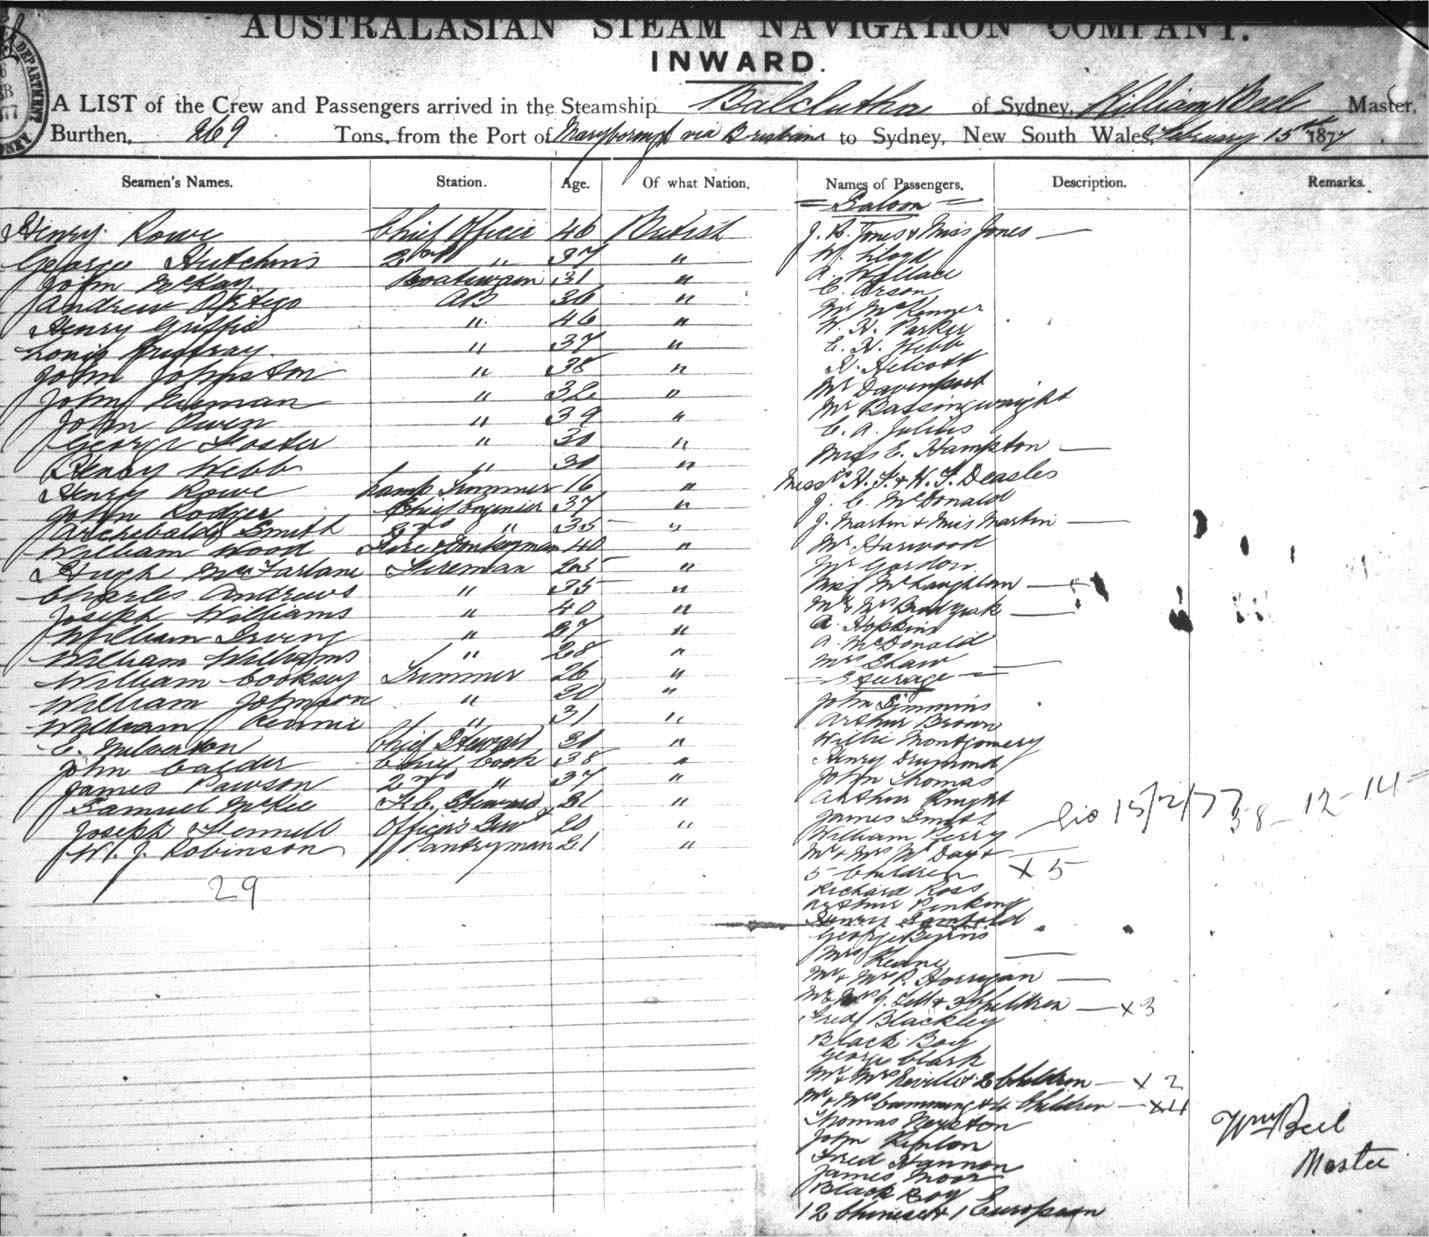 AUSTRALASIAN STEAM NAVIGATION COMPANY.
INWARD.
A LIST of the Crew and Passengers arrived in the Steamship Balclutha of Sydney, William Beel Master,
Burthen, 269 Tons, from the Port of Maryborough via Brisbane to Sydney, New South Wales, February 15th 1877
Seamen's Names. Station. Age. Of what Nation. Names of Passengers. Description. Remarks.
= Saloon =
Henry Rowe Chief Officer 46 British J. B. Jones & Miss Jones —
George Hutchins 2nd " 37 " W. Lloyd
John McKay Boatswain 31 " A. Wallace
Andrew AB 36 " C.
Henry Griffis " 46 " Mr McKenner
Louis " 37 " W. H. Parker
John Johnston " 38 " E. N. Webb
John Newman " 32 " Mr Davenport
John Owen " 39 " Mr Bassingwaight
George Foster " 30 " C. A. Julius
Henry Webb " 30 " Miss E. Hampton —
Henry Rowe Lamp Trimmer 16 " Messrs H. F. & H. F. Deasles
John Rodger Chief Engineer 37 " J. C. McDonald
Archibald Smith 2nd " 35 " J. Martin & Miss Martin —
William Wood Donkeyman 40 " Mr Harwood
Hugh McFarlane Fireman 25 " Mr Gordon
Charles Andrews " 35 " McLaughlan —
Joseph Williams " 40 " Mr & Mrs —
William Irving " 27 " A. Hopkins
William Williams " 28 " A. McDonald
William Cooksey Trimmer 26 " Mrs Shaw —
= Steerage =
William Johnson " 30 " John Simmins
William Rennie " 31 " Arthur Brown
E. Chief Steward 30 " Willie Montgomery
John Calder Chief Cook 38 " Henry Drummond
James Pawson 2nd " 37 " John Thomas
Samuel McKee 31 " Arthur Knight
Joseph Kennell Officer's Servt 20 " James Smith
W. J. Robinson Pantryman 21 " William Perry
15/2/77 38 — 12 — 14 =
29
Mr & Mrs &
5 Children × 5
Richard Ross
Arthur
Henry
George Byrns
Mrs Keane —
Mr & Mrs P. Horrigan —
Mr & Mrs & 3 Children — × 3
Fred Blackley
Black Boy
George Clark
Mr & Mrs Neville & 2 Children — × 2
Mr & Mrs Cumming & 4 Children — × 4
Thomas
John
Fred Hannon
James Moor
Black Boy
12 Chinese & 1 European
Wm Beel
Master